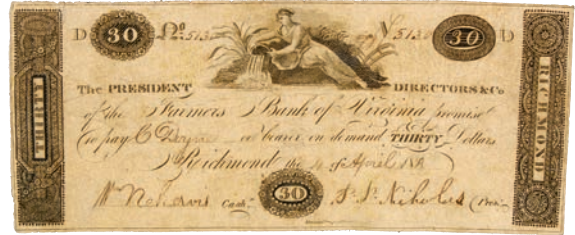 D 30 No 513 V 513 30 D
The PRESIDENT DIRECTORS & Co
of the Farmers Bank of Virginia promise
to pay C or bearer on demand THIRTY Dollars
Richmond the 4 of April
Cash. 30 Nicholas Pres.
THIRTY
RICHMOND